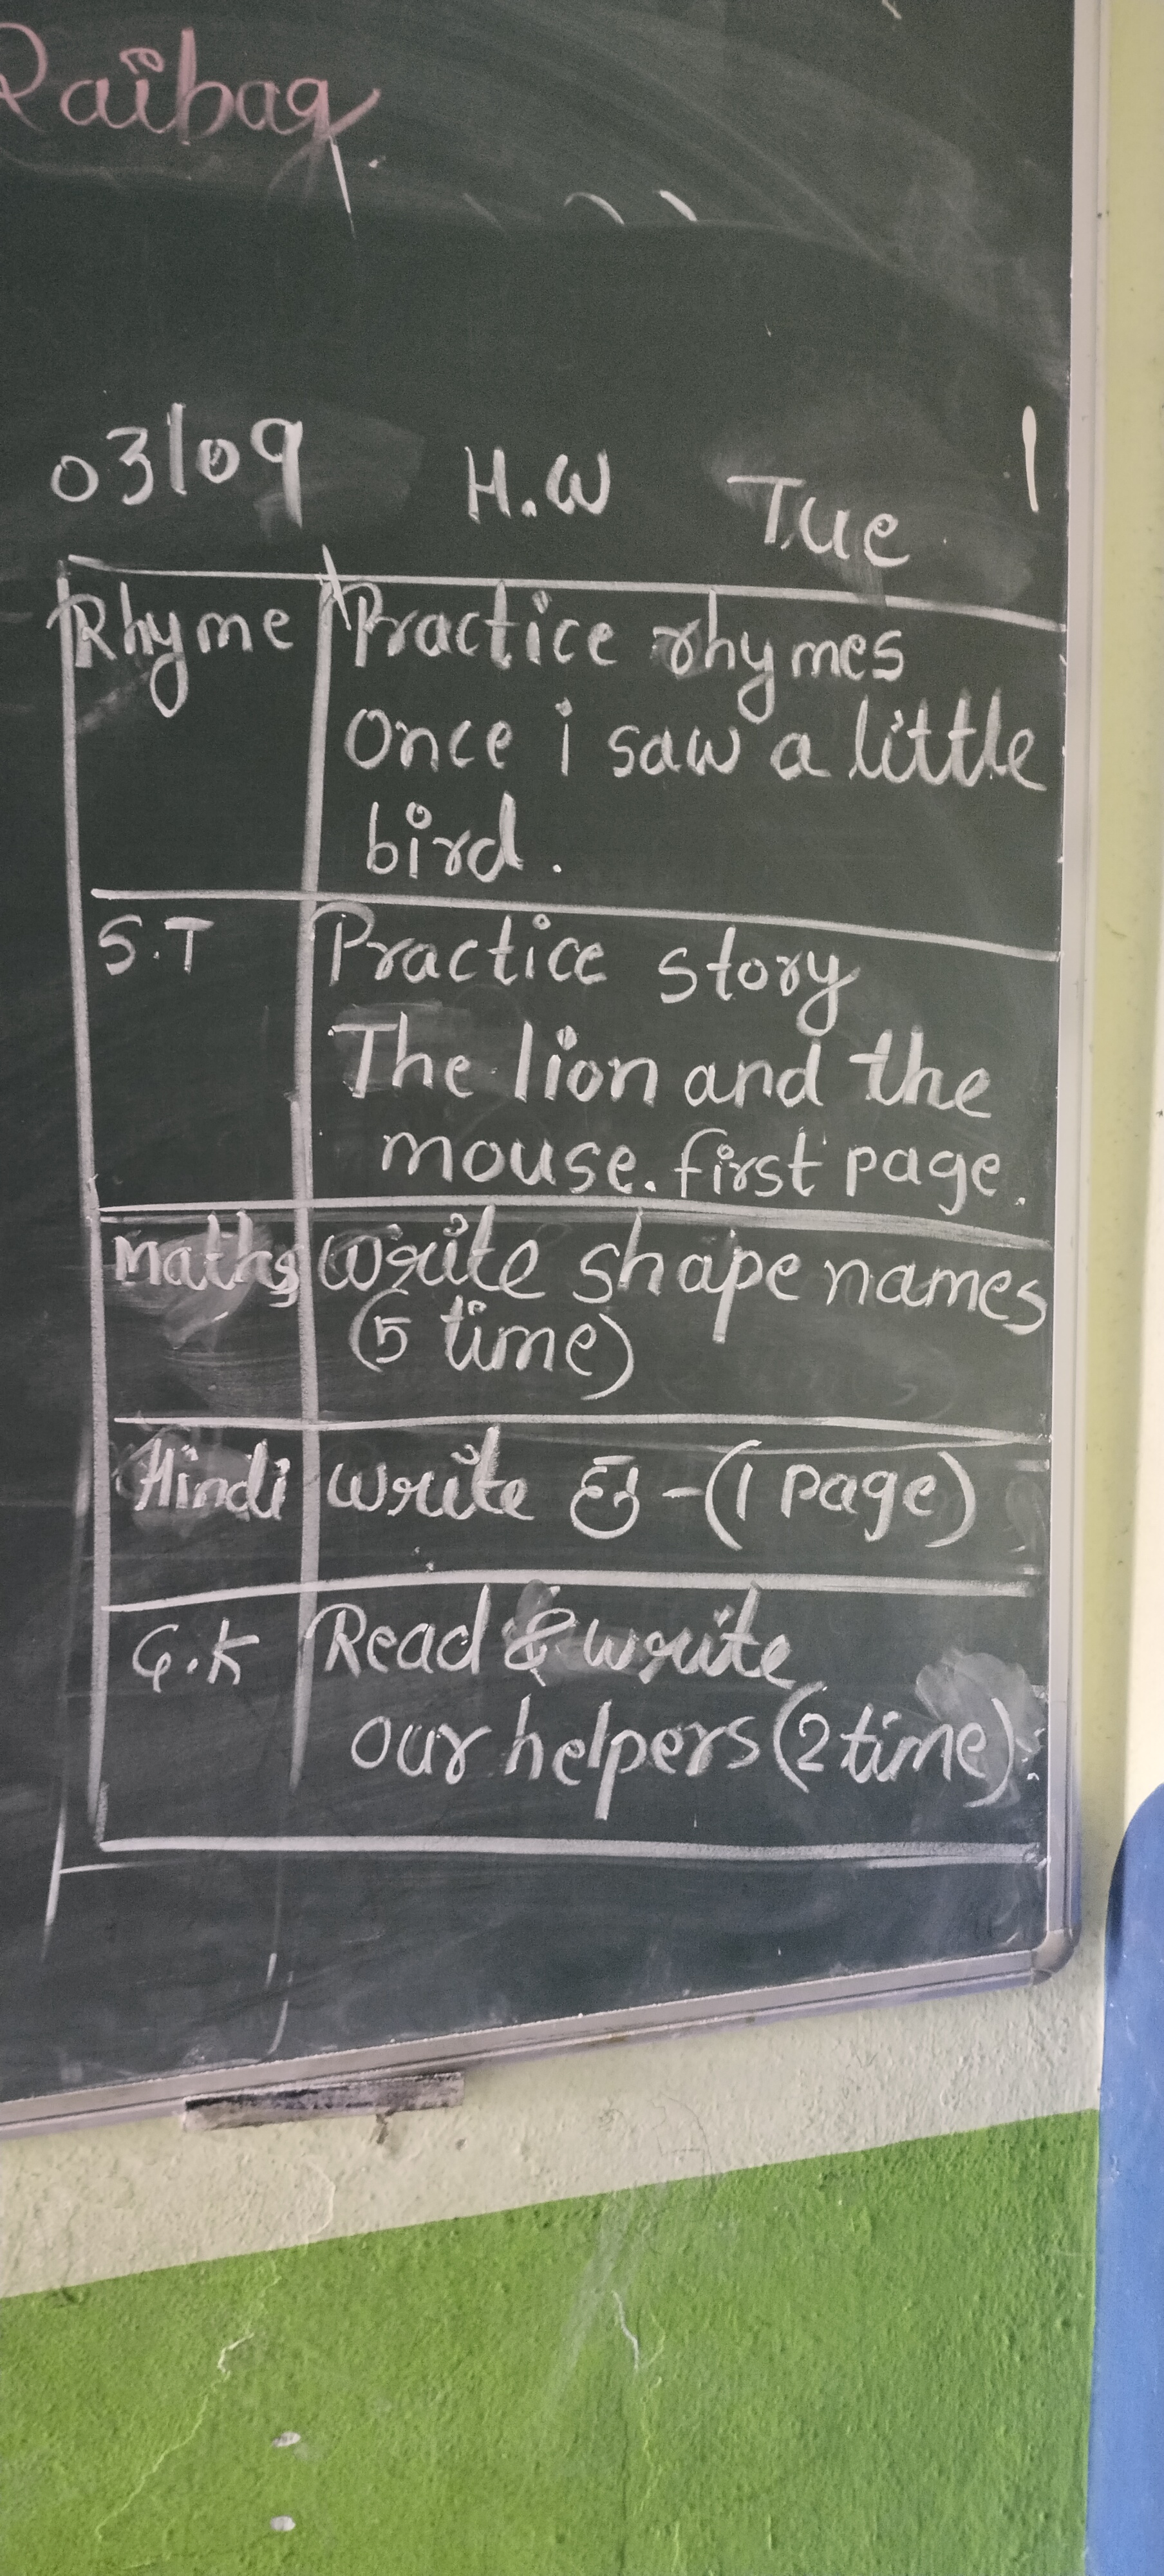 Raibag
03/09 H.W Tue
Rhyme Practice rhymes
Once i saw a little
bird.
S.T Practice story
The lion and the
mouse. first page.
Maths Write shape names
(5 time)
Hindi write - (1 page)
G.K Read & write
our helpers (2 time).